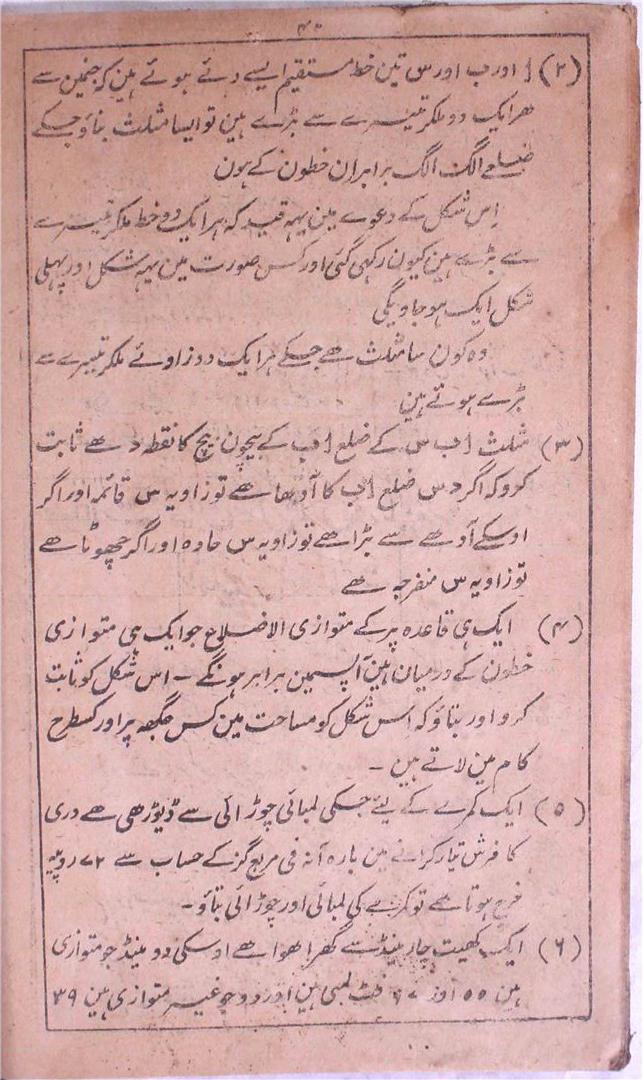 ۴۰
(۲) ا اور ب اور س تین خط مستقیم ایسے دئے ہوئے ہین کہ جنمین سے
ہرایک دو ملکر تیسرے سے بڑے ہین تو ایسا مثلث بناؤ جسکے
ضلعے الگ الگ برابر ان خطون کے ہون
اِس شکل کے دعوے مین یہہ قید کہ ہر ایک دو خط ملکر تیسرے
سے بڑے ہین کیون رکھی گئی اور کس صورت مین یہہ شکل اور پہلی
شکل ایک ہو جاویگی
وہ کون سا مثلث ھے جسکے ہر ایک دو زاوئے ملکر تیسرے سے
بڑے ہوتے ہین
(۳) مثلث ا ب س کے ضلع ا ب کے بیچون بیچ کا نقطہ د ھے ثابت
کرو کہ اگر د س ضلع ا ب کا آدھا ھے تو زاویہ س قائمہ اور اگر
اوسکے آدھے سے بڑا ھے تو زاویہ س حادہ اور اگر چھوٹا ھے
تو زاویہ س منفرجہ ھے
(۴) ایک ہی قاعدہ پر کے متوازی الاضلاع جو ایک ہی متوازی
خطون کے درمیان ہین آپسمین برابر ہونگے - اس شکل کو ثابت
کرو اور بتاؤ کہ اس شکل کو مساحت مین کس جگھہ پر اور کسطرح
کام مین لاتے ہین -
(۵) ایک کمرے کے لیئے جسکی لمبائی چوڑائی سے ڈیوڑھی ھے دری
کا فرش تیار کرانے مین بارہ آنہ فی مربع گز کے حساب سے ۷۲ روپیہ
خرچ ہوتا ھے تو کمرے کی لمبائی اور چوڑائی بتاؤ -
(۶) ایک کھیت چار مینڈ سے گھرا ھوا ھے اوسکی دو مینڈ جو متوازی
ہین ۵۵ اور فٹ لمبی ہین اور دو جو غیر متوازی ہین ۳۹